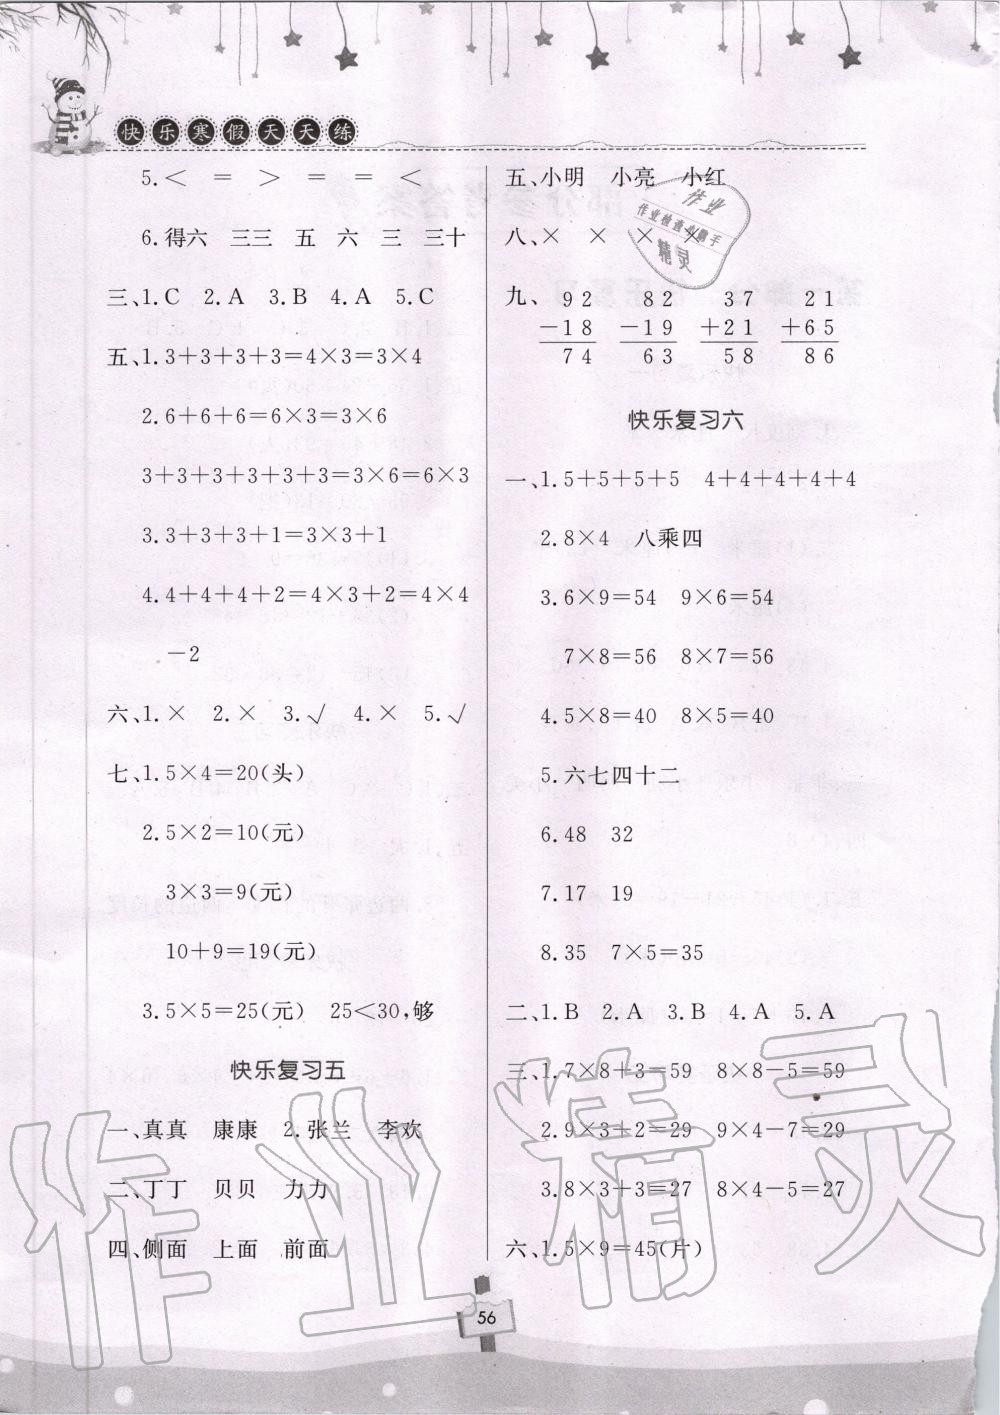 快乐寒假天天练
5.＜ ＝ ＞ ＝ ＝ ＜
6.得六 三三 五 六 三 三十
三、1.C 2.A 3.B 4.A 5.C
五、1.3＋3＋3＋3＝4×3＝3×4
2.6＋6＋6＝6×3＝3×6
3＋3＋3＋3＋3＋3＝3×6＝6×3
3.3＋3＋3＋1＝3×3＋1
4.4＋4＋4＋2＝4×3＋2＝4×4
－2
六、1.× 2.× 3.√ 4.× 5.√
七、1.5×4＝20(头)
2.5×2＝10(元)
3×3＝9(元)
10＋9＝19(元)
3.5×5＝25(元) 25＜30,够
快乐复习五
一、真真 康康 2.张兰 李欢
二、丁丁 贝贝 力力
四、侧面 上面 前面
五、小明 小亮 小红
八、× × × ×
九、 92 82 37 21
－18 －19 ＋21 ＋65
74 63 58 86
快乐复习六
一、1.5＋5＋5＋5 4＋4＋4＋4＋4
2.8×4 八乘四
3.6×9＝54 9×6＝54
7×8＝56 8×7＝56
4.5×8＝40 8×5＝40
5.六七四十二
6.48 32
7.17 19
8.35 7×5＝35
二、1.B 2.A 3.B 4.A 5.A
三、1.7×8＋3＝59 8×8－5＝59
2.9×3＋2＝29 9×4－7＝29
3.8×3＋3＝27 8×4－5＝27
六、1.5×9＝45(片)
56
作业
作业检查小助手
精灵
作业精灵